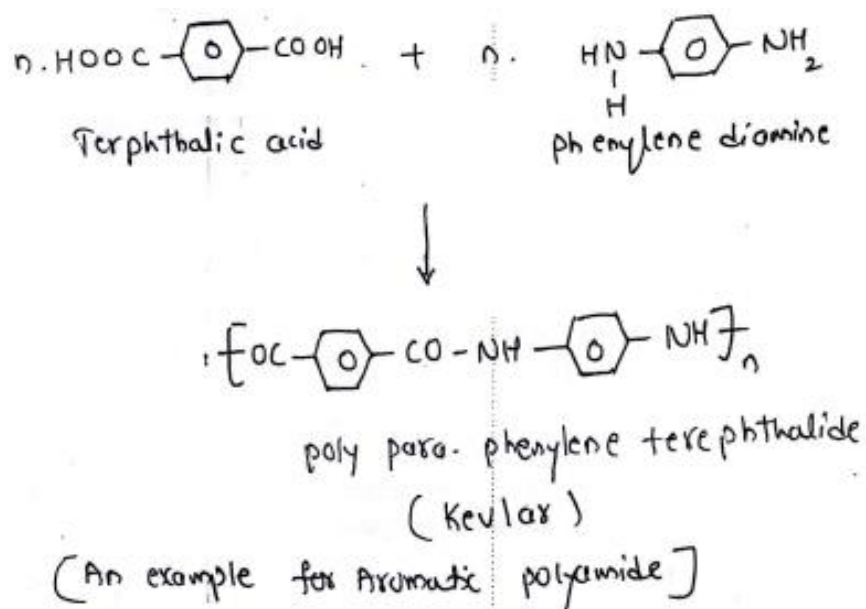 n. HOOC COOH. + n. HN NH2
H
Terphthalic acid phenylene diamine
[OC CO-NH NH]n
poly para. phenylene terephthalide
(Kevlar)
(An example for Aromatic polyamide]